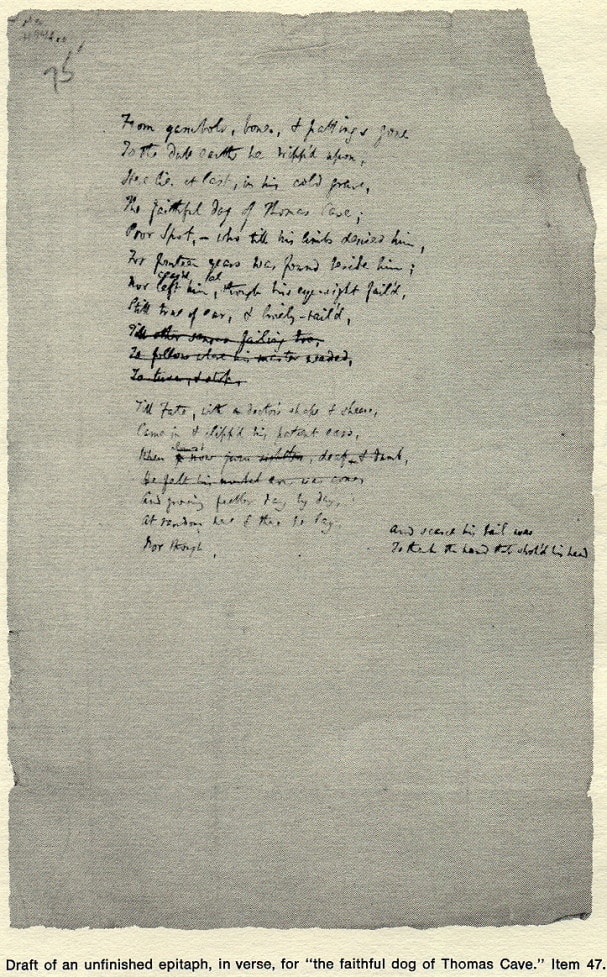 75
From gambols, bones, & pattings gone
To the dull earth he tripp'd upon,
Here lies at last, in his cold grave,
The faithful dog of Thomas Cave;
Poor Spot, – who till his limbs denied him,
For fourteen years was found beside him;
ceas'd, yet
Nor left him, though his eye-sight fail'd,
Still true of ear, & lively-tail'd,
Till other senses failing too,
To follow what his master needed,
To turn,
Till Fate, with a doctor's shape & sheers,
Came in & clipp'd his patent ears,
When now grown sightless, deaf & dumb,
He felt his was come
And growing feebler day by day,
At random here & there he lay,
Nor though,
And scarce his tail was
To thank the hand that strok'd his head
Draft of an unfinished epitaph, in verse, for "the faithful dog of Thomas Cave." Item 47.